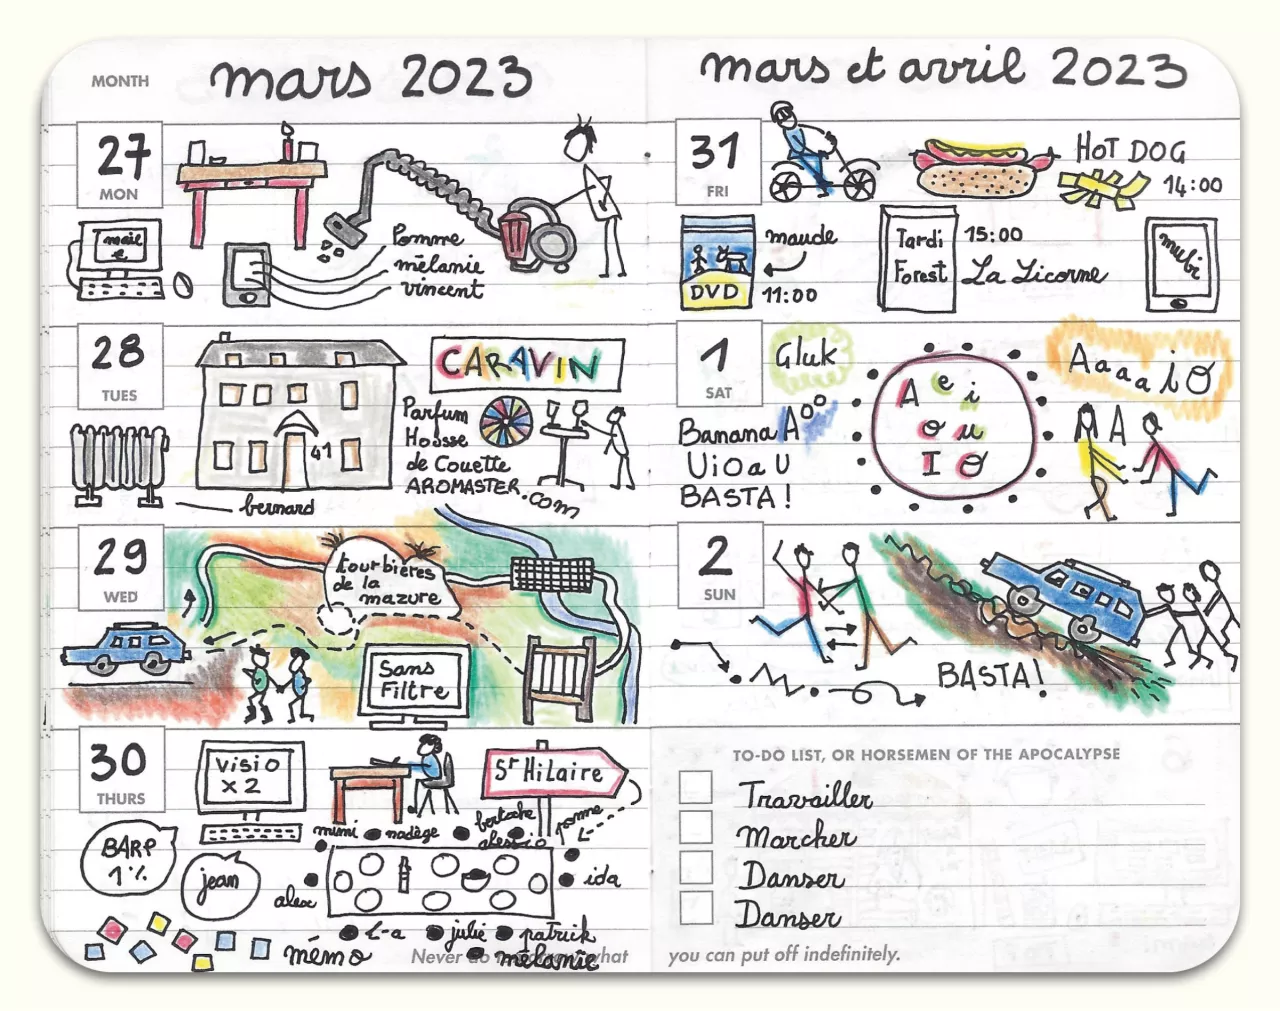 MONTH mars 2023
27
MON
maie
e
Pomme
mélanie
vincent
28
TUES
41
bernard
CARAVIN
Parfum
Housse
de Couette
AROMASTER.com
29
WED
tourbières
de la
mazure
Sans
Filtre
30
THURS
Visio
x 2
St Hilaire
BARP
1%
jean
mimi
nadège
bertoche
alessio
pomme
L-
alex
ida
L-a
julie
patrick
mélanie
mémo
Never do what
mars et avril 2023
31
FRI
HOT DOG
14:00
DVD
maude
11:00
Tardi
Forest
15:00
La Licorne
mubi
1
SAT
Gluk
BananaA°°
UiOaU
BASTA!
A e i
o u
I O
AaaaiO
A A
2
SUN
BASTA!
TO-DO LIST, OR HORSEMEN OF THE APOCALYPSE
Travailler
Marcher
Danser
Danser
you can put off indefinitely.